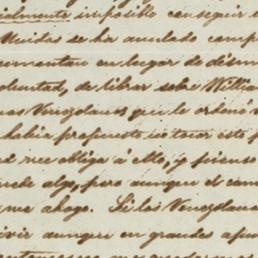 ialmente imposible conseguir
Unidos se ha anulado comp
umentan en lugar de dismi
oluntad, de librar sobre Willia
nos Venezolanos que le ordenó
habia propuesto no tocar este f
me obliga á ello, y pienso
uede algo, pero aunque el cam
me ahogo. Si los Venezolano
ivir aunque en grandes apu